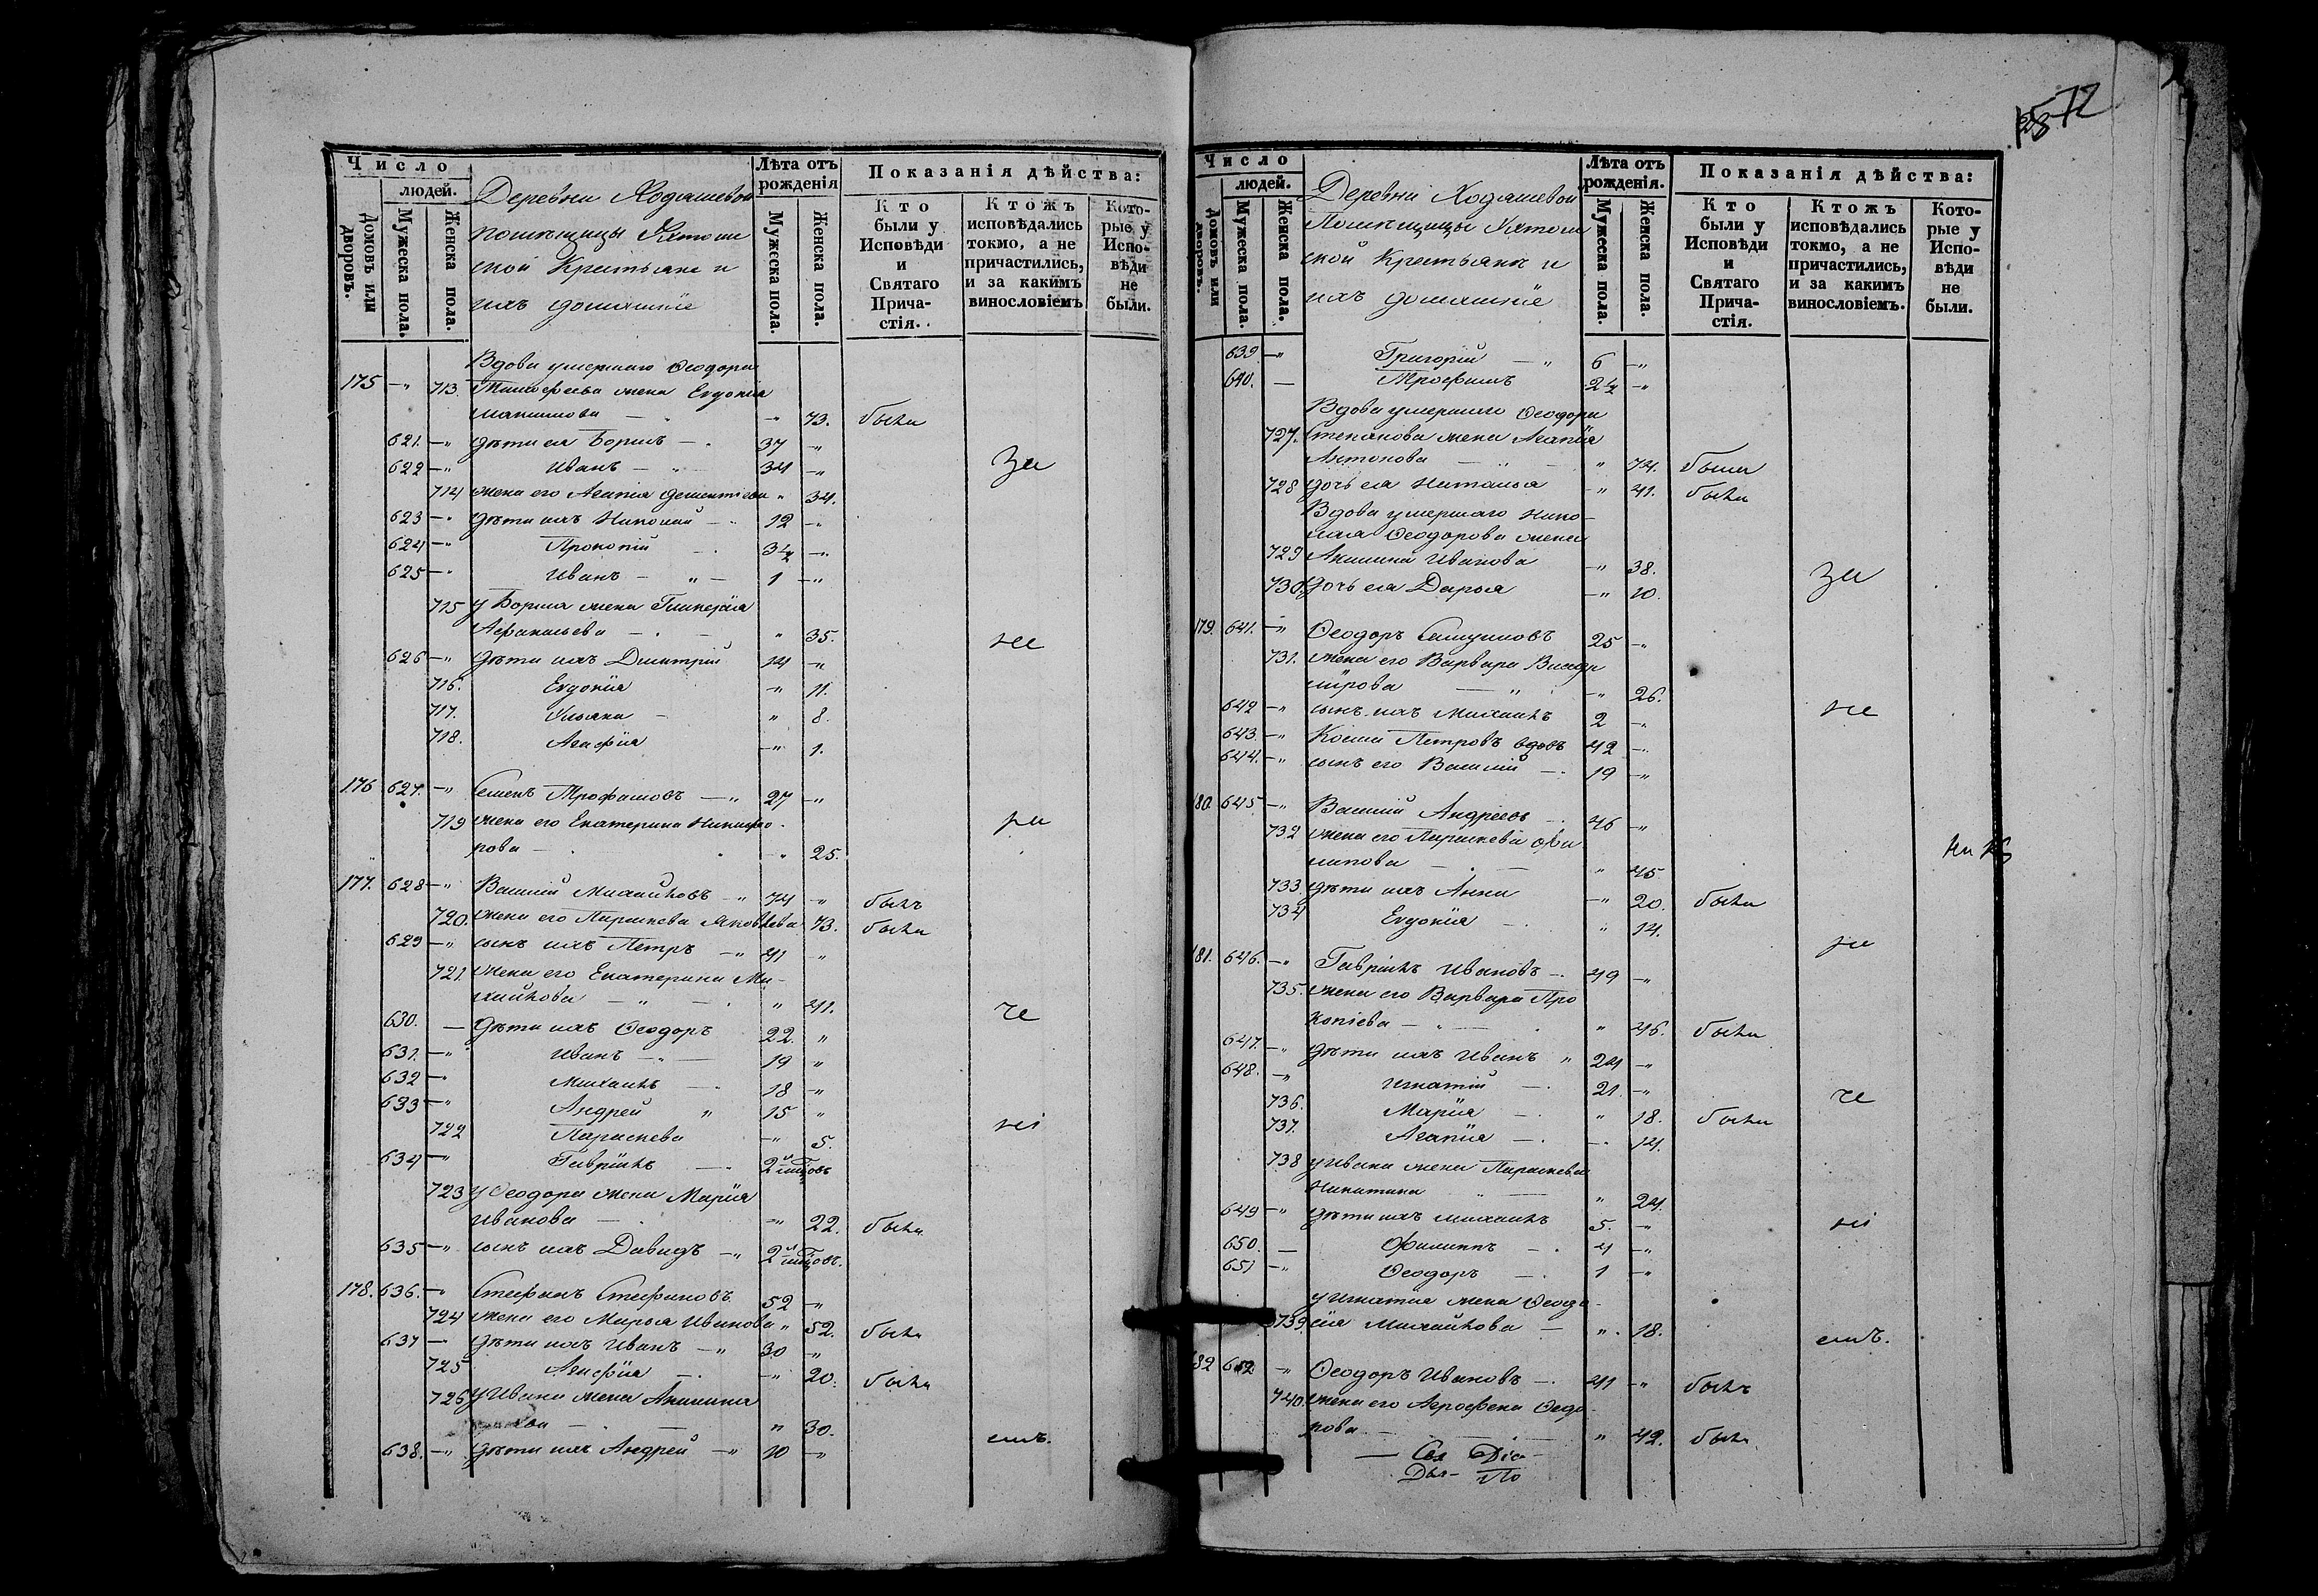 572
Число
людей.
Домовъ или дворовъ.
Мужеска пола.
Женска пола.
Деревни Ходашевой
помѣщицы
ской Крестьяне и
ихъ домашніе
Лѣта отъ рожденія
Мужеска пола.
Женска пола.
Показанія дѣйства:
Кто были у Исповѣди и Святаго Причастія.
Ктожъ исповѣдались токмо, а не причастились, и за какимъ винословіемъ
Которые у Исповѣди не были.
Вдова умершаго Ѳеодора
175 —" 713. Тимофеева жена Евдокія
Максимова — " 73. была
621. —" дѣти ея Борисъ — 37 —"
622 —" Иванъ — " 34 —" за
714 жена его Агапія Дементіева " 34.
623 —" дѣти ихъ Николай — 12 —"
624 —" Прокопій — 3½ —"
625 —" Иванъ — " — 1 —"
715 у Бориса жена Гликерія
Афанасьева — " 35. не
626 —" дѣти ихъ Димитрій 14 —"
716. Евдокія —" 11.
717. Ульяна — " 8.
718. Агафія —" 1.
176 627. —" Семенъ Трофимовъ —" 27 —"
719 жена его Екатерина Никифо-
рова — —" 25.
177. 628 —" Василій Михайловъ —" 74 —" былъ
720. жена его Параскева Яковлева 73. была
629 —" сынъ ихъ Петръ —" 41 —"
721. жена его Екатерина Ми-
хайлова — " — " 41.
630. — дѣти ихъ Ѳеодоръ 22. "
631. —" Иванъ —" 19 "
632 —" Михаилъ — 18 —"
633 —" Андрей " 15 "
722 Параскева —" 5.
634 —" Гавріилъ — 2
723 у Ѳеодора жена Марія
Иванова — —" 22. была
635 —" сынъ ихъ Давидъ —" 2
178. 636. —" Стефанъ Стефановъ 52 —"
724 жена его Марья Иванова " 52. была
637 — дѣти ихъ Иванъ —" 30 —"
725 Агафія — —" 20. была
726 у Ивана жена Акилина
— " 30.
638. —" дѣти ихъ Андрей —" 10 —"
Число
людей.
Домовъ или дворовъ.
Мужеска пола.
Женска пола.
Деревни Ходашевой
Помѣщицы
ской Крестьянъ и
ихъ домашніе
Лѣта отъ рожденія.
Мужеска пола.
Женска пола.
Показанія дѣйства:
Кто были у Исповѣди и Святаго Причастія.
Ктожъ исповѣдались токмо, а не причастились, и за какимъ винословіемъ.
Которые у Исповѣди не были.
639. —" Григорій —" 6 —"
640. — Трофимъ 2½ —"
Вдова умершаго Ѳеодора
727. Степанова жена Агапія
Антонова — " 74. была
728 дочь ея Наталья —" 41. была
Вдова умершаго Нико-
лая Ѳеодорова жена
729 Акилина Иванова —" 38. за
730. дочь ея Дарья —" 10.
179. 641. —" Ѳеодоръ 25 —"
731. жена его Варвара Влади
мірова — " —" 26.
642 —" сынъ ихъ Михаилъ 2 —" не
643. —" Косма Петровъ вдовъ 42 —"
644. —" сынъ его Василій — 19 —"
180. 645 —" Василій Андреевъ — 46 —"
732 жена его Параскева Фи
липова — " 45
733. дѣти ихъ Анна —" 20. была
734 Евдокія — " 14.
181. 646. —" Гавріилъ Ивановъ — 49 —"
735. жена его Варвара Про
копіева — " — " 46. была
647. —" дѣти ихъ Иванъ " 24 —"
648. —" Игнатій — 21. —"
736. Марія — " 18. была
737. Агапія — —" 14.
738 у Ивана жена Параскева
Никитина — " 24.
649 —" дѣти ихъ Михаилъ 5. —"
650. — Филиппъ — 4 —"
651 —" Ѳеодоръ — 1 —"
у Игнатія жена Ѳеодо-
739. сія Михайлова — ". 18.
182 652 —" Ѳеодоръ Ивановъ — 41 —" былъ
740. жена его Агрофена Ѳедо-
рова — " 42. была